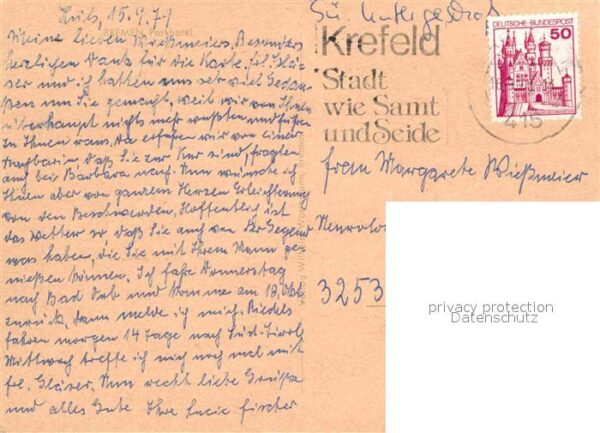 Hüls, 15.9.79
BREMEN Parkhotel
Meine lieben Wießmeiers, Besonders
herzlichen Dank für die Karte, frl. Glä-
ser und ich hatten uns sehr viel Gedan-
ken um Sie gemacht, weil wir von Ihnen
überhaupt nichts mehr wußten und fuhren
zu Ihnen raus. Da erfuhren wir von einer
Nachbarin, daß Sie zur Kur sind, fragten
auch bei Barbara nach. Nun wünsche ich
Ihnen aber von ganzem Herzen Erleichterung
von den Beschwerden. Hoffentlich ist
das Wetter so, daß Sie auch von der Gegend
was haben, die Sie mit Ihrem Mann ge-
nießen können. Ich fahre Donnerstag
nach Bad und komme am 18. Okt.
zurück, dann melde ich mich. Riedels
fahren morgen 14 Tage nach Süd-Tirol.
Mittwoch treffe ich mich noch mal mit
frl. Gläser. Nun recht liebe Grüße
und alles Gute Ihre Lucie Fischer
Krefeld
Stadt
wie Samt
und Seide
DEUTSCHE BUNDESPOST
50
415
Frau Margarete Wießmeier
3253
privacy protection
Datenschutz